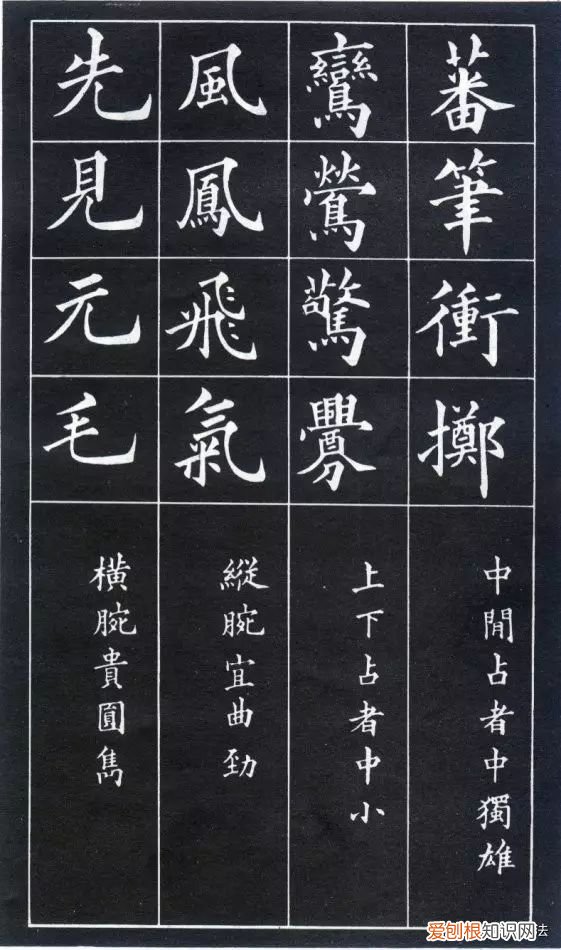 蕃筆衝擲
中閒占者中獨雄
鸞鶯驚釁
上下占者中小
風鳳飛氣
縱腕宜曲勁
先見元毛
橫腕貴圓雋
爱刨根知识网法